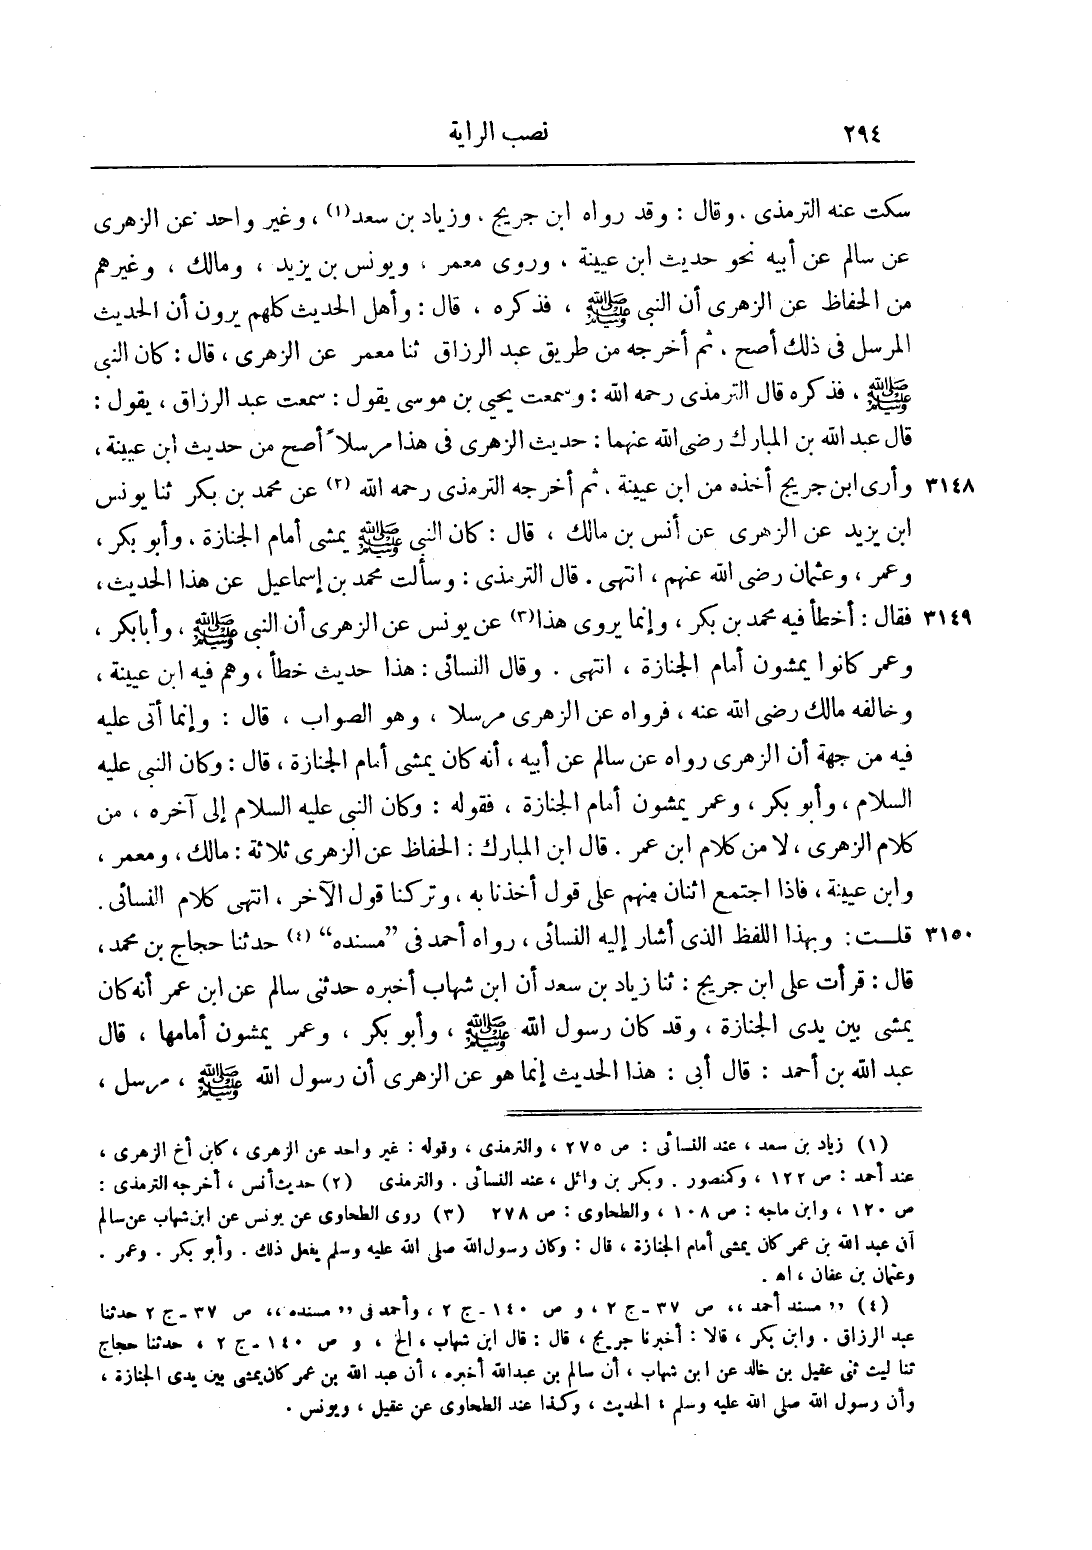 ٢٩٤ نصب الراية
سكت عنه الترمذى . وقال : وقد رواه ابن جريج . وزياد بن سعد(١) ، وغير واحد عن الزهرى
عن سالم عن أبيه نحو حديث ابن عيينة ، وروى معمر ، ويونس بن يزيد ، ومالك ، وغيرهم
من الحفاظ عن الزهرى أن النبى ﷺ ، فذكره ، قال : وأهل الحديث كلهم يرون أن الحديث
المرسل فى ذلك أصح . ثم أخرجه من طريق عبد الرزاق ثنا معمر عن الزهرى ، قال : كان النبى
ﷺ ، فذكره قال الترمذى رحمه الله : وسمعت يحيى بن موسى يقول : سمعت عبد الرزاق ، يقول :
قال عبد الله بن المبارك رضى الله عنهما : حديث الزهرى فى هذا مرسلاً أصح من حديث ابن عيينة ،
٣١٤٨ وأرى ابن جريج أخذه من ابن عيينة . ثم أخرجه الترمذى رحمه الله (٢) عن محمد بن بكر ثنا يونس
ابن يزيد عن الزهرى عن أنس بن مالك ، قال : كان النبى ﷺ يمشى أمام الجنازة . وأبو بكر ،
وعمر ، وعثمان رضى الله عنهم ، انتهى . قال الترمذى : وسألت محمد بن إسماعيل عن هذا الحديث ،
٣١٤٩ فقال : أخطأ فيه محمد بن بكر ، وإنما يروى هذا(٣) عن يونس عن الزهرى أن النبى ﷺ ، وأبا بكر ،
وعمر كانوا يمشون أمام الجنازة ، انتهى . وقال النسائى : هذا حديث خطأ ، وهم فيه ابن عيينة ،
وخالفه مالك رضى الله عنه ، فرواه عن الزهرى مرسلا ، وهو الصواب ، قال : وإنما أتى عليه
فيه من جهة أن الزهرى رواه عن سالم عن أبيه ، أنه كان يمشى أمام الجنازة ، قال : وكان النبى عليه
السلام ، وأبو بكر ، وعمر يمشون أمام الجنازة ، فقوله : وكان النبى عليه السلام إلى آخره ، من
كلام الزهرى ، لا من كلام ابن عمر . قال ابن المبارك : الحفاظ عن الزهرى ثلاثة : مالك ، ومعمر ،
وابن عيينة ، فاذا اجتمع اثنان منهم على قول أخذنا به ، وتركنا قول الآخر ، انتهى كلام النسائى .
٣١٥٠ قلــت : وبهذا اللفظ الذى أشار إليه النسائى ، رواه أحمد فى ”مسنده“ (٤) حدثنا حجاج بن محمد ،
قال : قرأت على ابن جريج : ثنا زياد بن سعد أن ابن شهاب أخبره حدثنى سالم عن ابن عمر أنه كان
يمشى بين يدى الجنازة ، وقد كان رسول الله ﷺ ، وأبو بكر ، وعمر يمشون أمامها ، قال
عبد الله بن أحمد : قال أبى : هذا الحديث إنما هو عن الزهرى أن رسول الله ﷺ ، مرسل ،
(١) زياد بن سعد ، عند النسائى : ص ٢٧٥ ، والترمذى ، وقوله : غير واحد عن الزهرى ، كابن أخ الزهرى ،
عند أحمد : ص ١٢٢ ، وكمنصور . وبكر بن وائل ، عند النسائى . والترمذى (٢) حديث أنس ، أخرجه الترمذى :
ص ١٢٠ ، وابن ماجه : ص ١٠٨ ، والطحاوى : ص ٢٧٨ (٣) روى الطحاوى عن يونس عن ابن شهاب عن سالم
أن عبد الله بن عمر كان يمشى أمام الجنازة ، قال : وكان رسول الله صلى الله عليه وسلم يفعل ذلك . وأبو بكر . وعمر .
وعثمان بن عفان ، اه .
(٤) ,, مسند أحمد ،، ص ٣٧ ـ ج ٢ ، و ص ١٤٠ ـ ج ٢ ، وأحمد فى ,, مسنده ،، ص ٣٧ ـ ج ٢ حدثنا
عبد الرزاق . وابن بكر ، قالا : أخبرنا جريج ، قال : قال ابن شهاب ، الخ ، و ص ١٤٠ ـ ج ٢ ، حدثنا حجاج
ثنا ليث ثنى عقيل بن خالد عن ابن شهاب ، أن سالم بن عبدالله أخبره ، أن عبد الله بن عمر كان يمشى بين يدى الجنازة ،
وأن رسول الله صلى الله عليه وسلم ؛ الحديث ، وكذا عند الطحاوى عن عقيل ، ويونس .